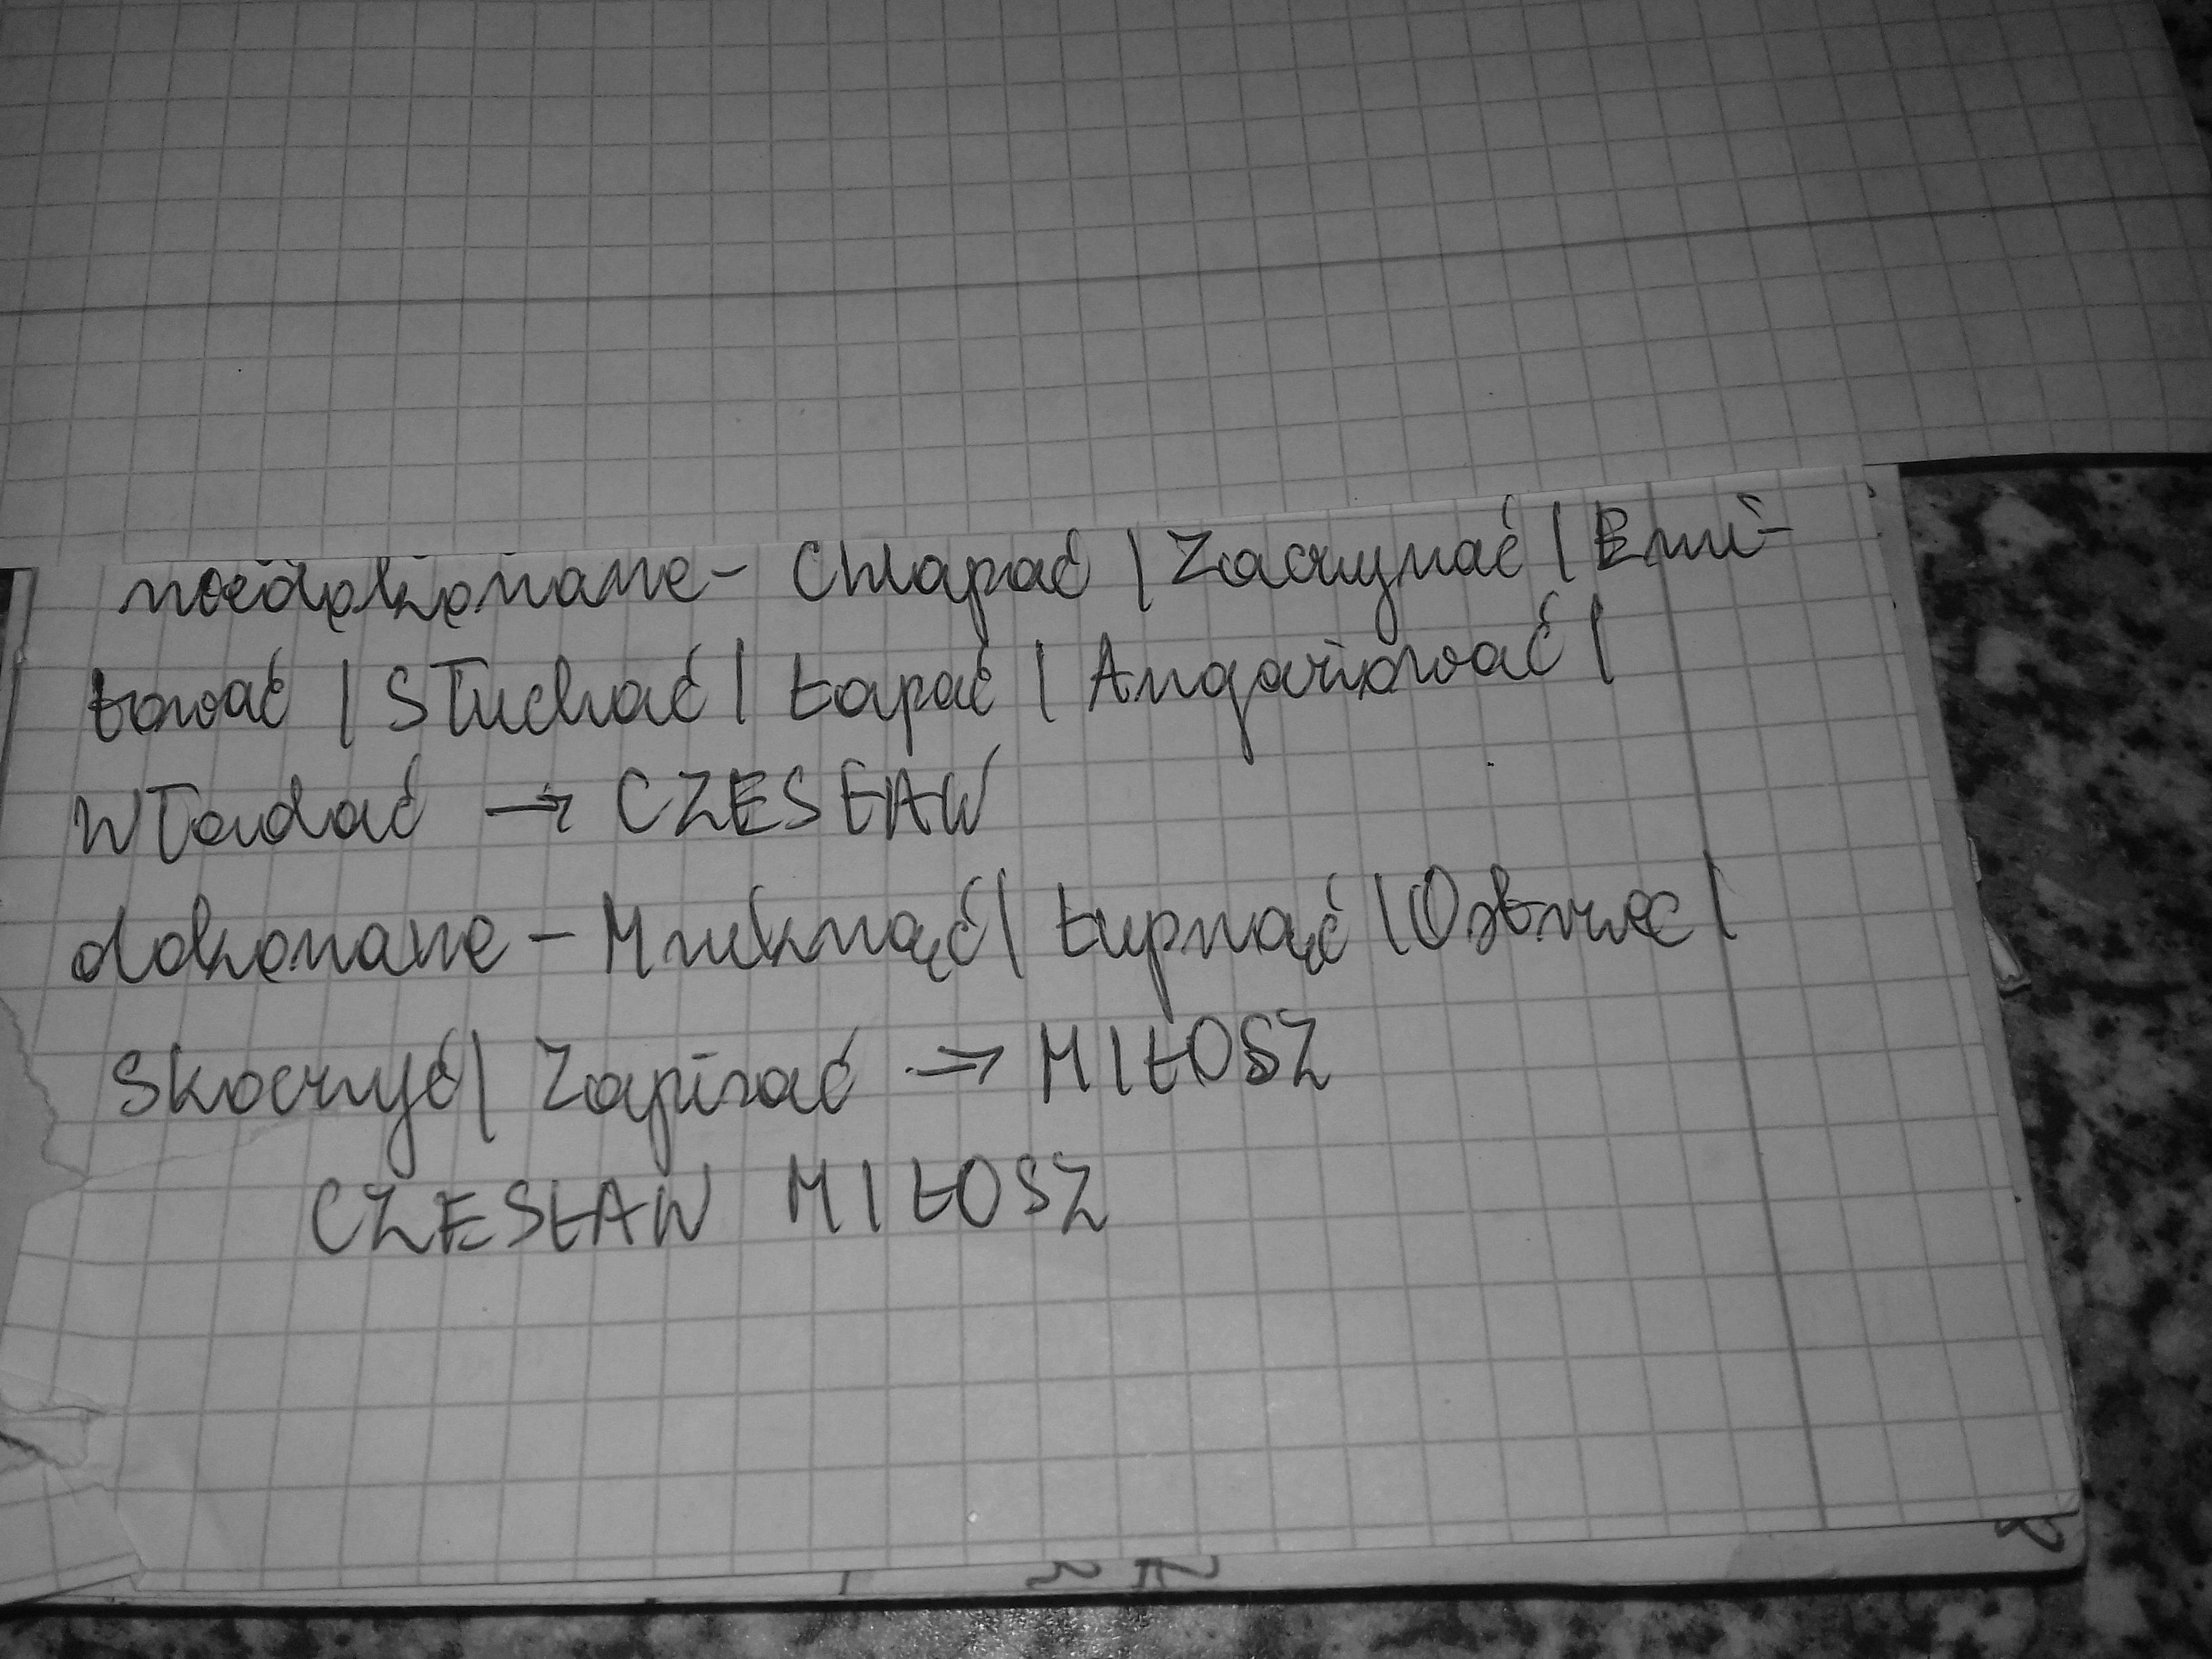 niedokonane - Chlapać | Zaczynać | Emi-
tować | Słuchać | Łapać | Angażować |
Władać → CZESŁAW
dokonane - Mruknąć | Łupnąć |
Skoczyć | Zapisać → MIŁOSZ
CZESŁAW MIŁOSZ